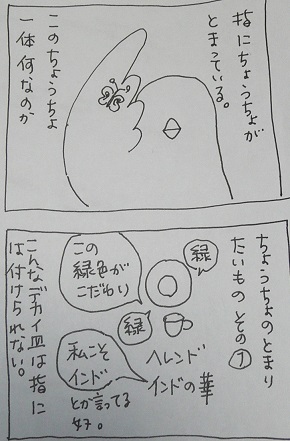 指にちょうちょが
とまっている。
このちょうちょ
一体何なのか
ちょうちょのとまり
たいものその①
緑
緑
この
緑色が
こだわり
ヘレンド
インドの華
私こそ
インド
とか言ってる
奴。
こんなデカイ皿は指に
は付けられない。